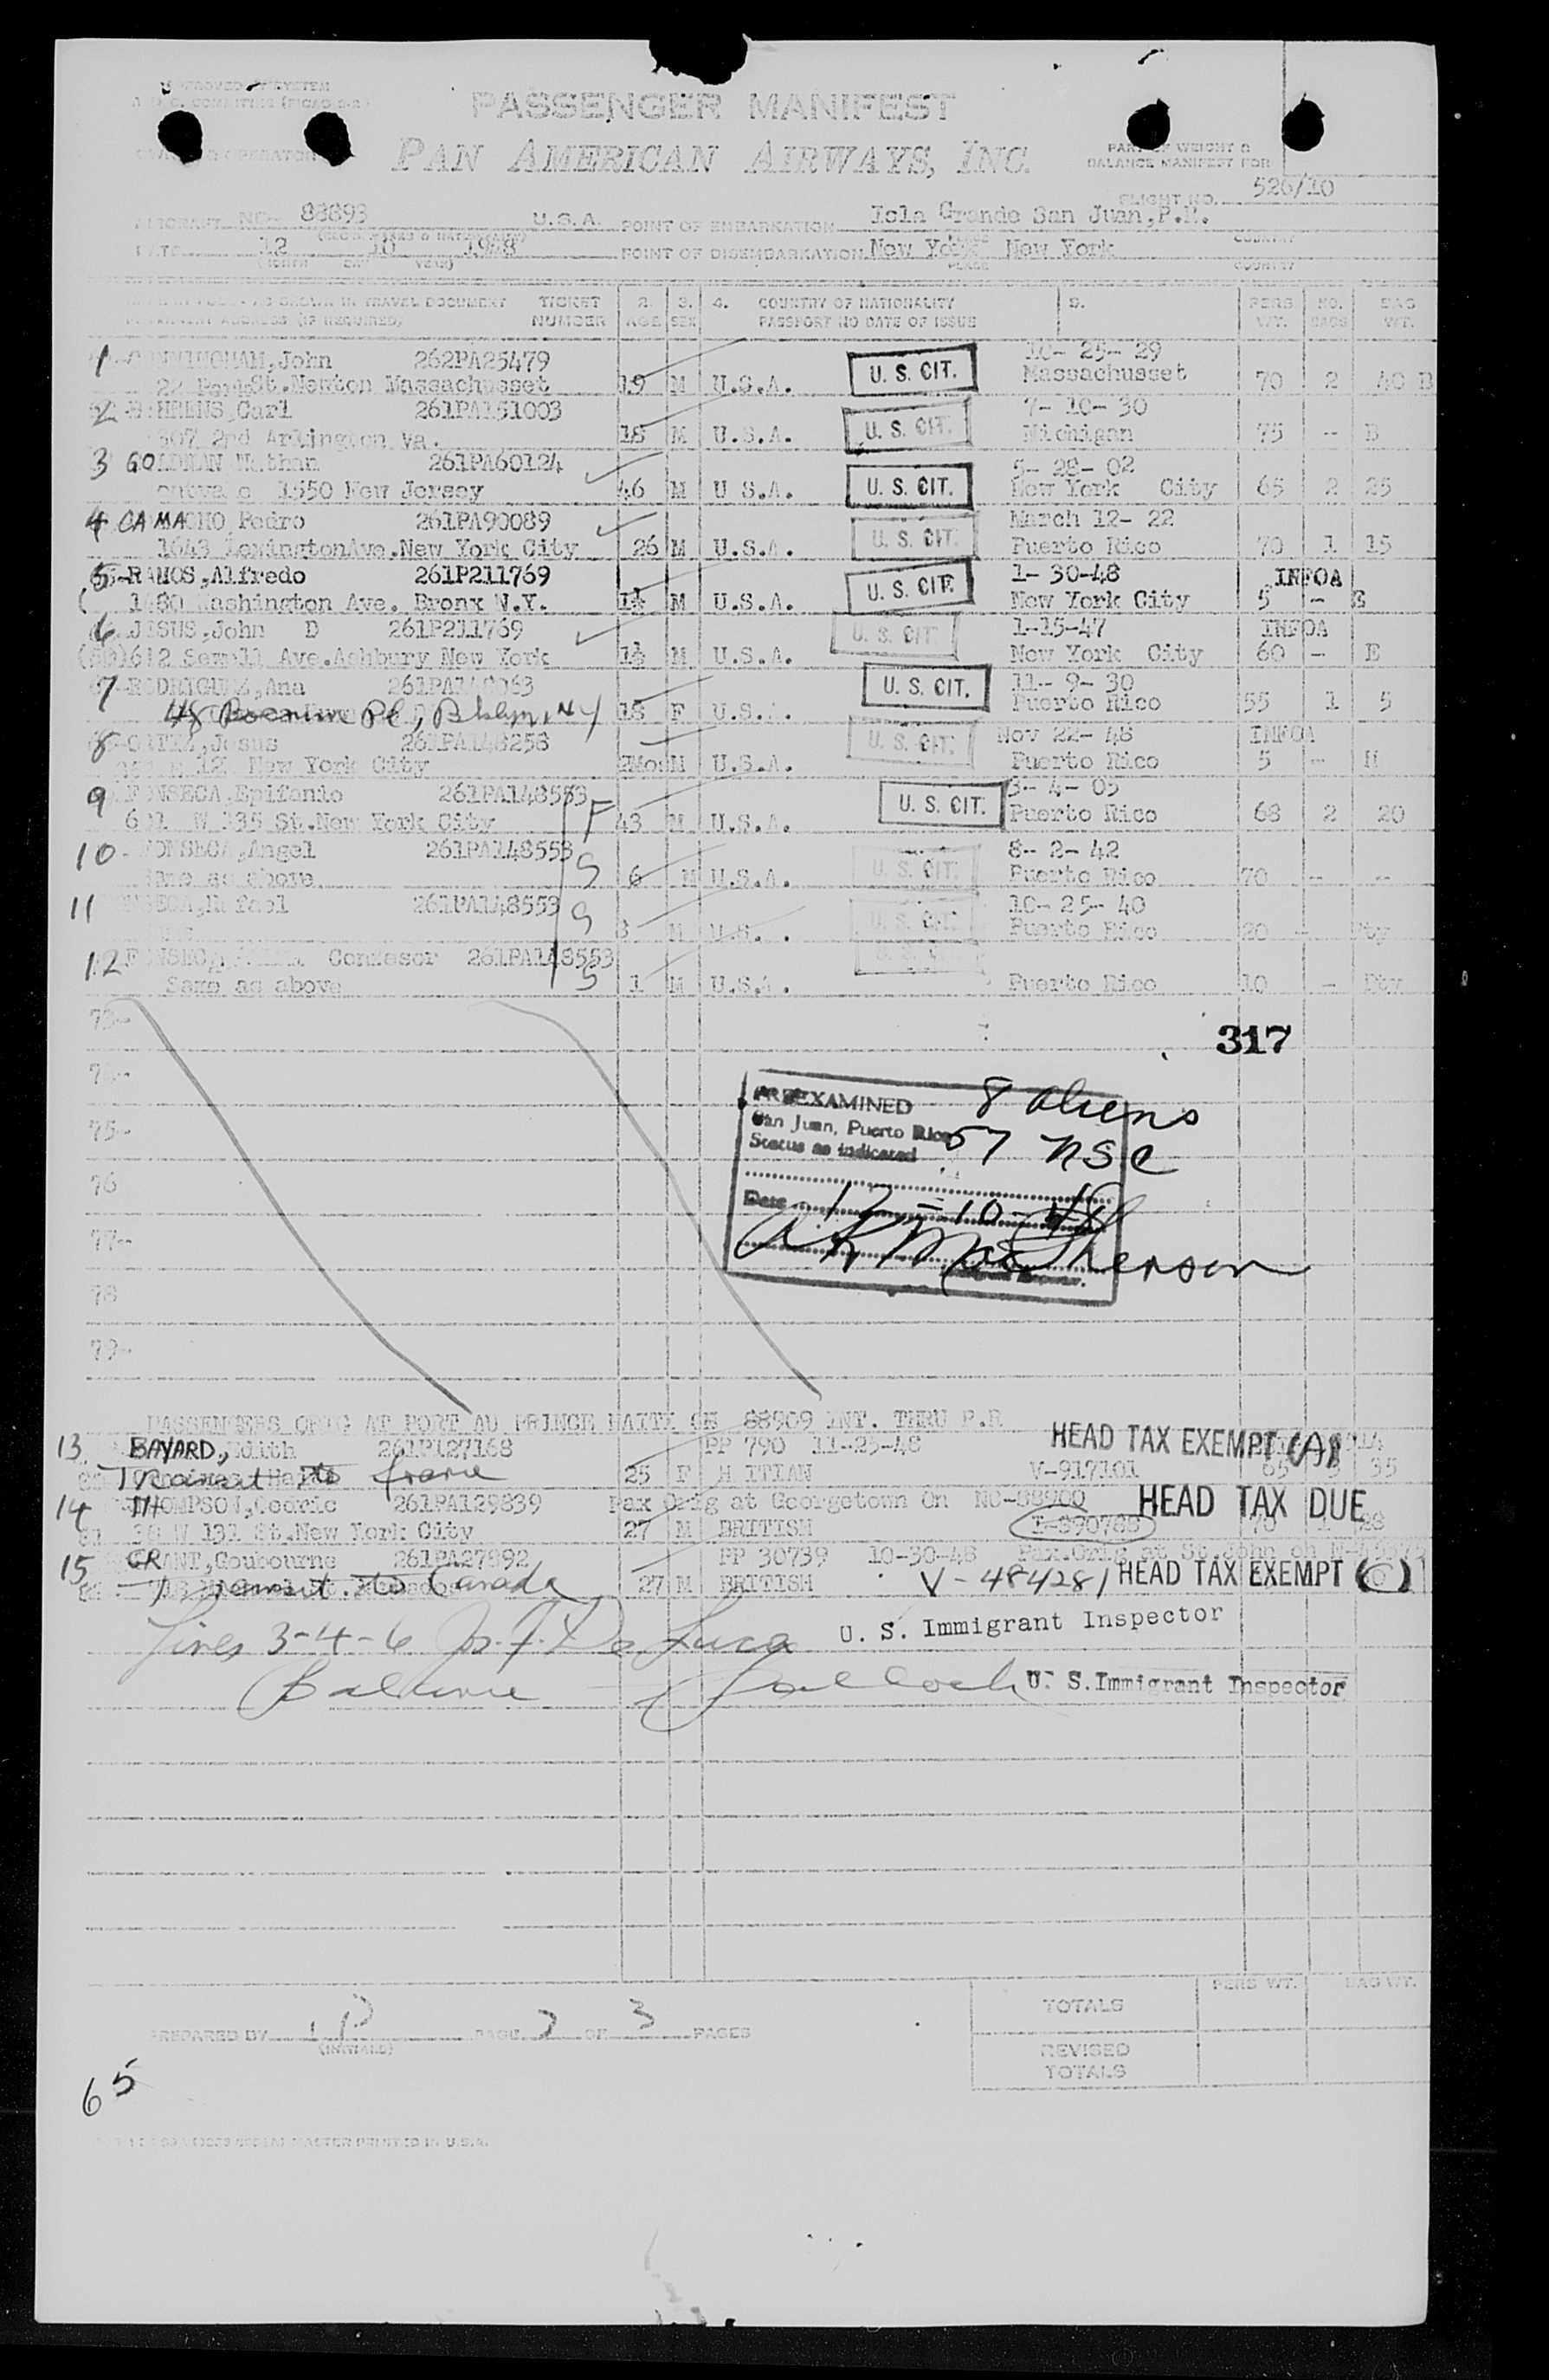 PASSENGER MANIFEST
PAN AMERICAN AIRWAYS, INC.
PART OF WEIGHT &
BALANCE MANIFEST FOR
FLIGHT NO. 526/10
AIRCRAFT NC- 88893 U.S.A. POINT OF EMBARKATION Isla Grande San Juan, P.R.
DATE 12 10 1948 POINT OF DISEMBARKATION New York New York
PLACE COUNTRY
SHOWN IN TRAVEL DOCUMENT TICKET 2. 3. 4. COUNTRY OF NATIONALITY 5. PERS NO. BAG
PERMANENT ADDRESS (IF REQUIRED) NUMBER AGE SEX PASSPORT NO DATE OF ISSUE WT. BAGS WT.
1 CUNNINGHAM, John 262PA25479 10- 25- 29
22 St. Newton Massachusset 19 M U.S.A. U. S. CIT. Massachusset 70 2 40 B
2 Carl 261PA151003 7- 10- 30
2nd Arlington Va. 18 M U.S.A. U. S. CIT. Michigan 75 -- B
3 GO Nathan 261PA60124 5- 28- 02
1550 New Jersey 46 M U S.A. U. S. CIT. New York City 65 2 25
4 CAMACHO Pedro 261PA90089 March 12- 22
1643 LexingtonAve. New York City 26 M U.S.A. U. S. CIT. Puerto Rico 70 1 15
5 RAMOS, Alfredo 261P211769 1- 30-48 INFOA
1480 Washington Ave. Bronx N.Y. 1½ M U.S.A. U. S. CIT. New York City 5 - E
6 JESUS, John D 261P211769 1-15-47 INFOA
612 Sewell Ave. Ashbury New York 1½ M U.S.A. U. S. CIT New York City 60 - E
7 RODRIGUEZ, Ana 11- 9- 30
48 Pl, Bklyn, NY 18 F U.S. U. S. CIT. Puerto Rico 55 1 5
8 ORTIZ, Jesus 261PA148258 Nov 22- 48 INFOA
12 New York City 2Mos M U.S.A. U. S. CIT. Puerto Rico 5 - H
9 FONSECA, Epifanio 261PA148553 F 3- 4- 05
W 135 St. New York City 43 M U.S.A. U. S. CIT. Puerto Rico 68 2 20
10 FONSECA, Angel 261PA148553 S 8- 2- 42
Same as above 6 M U.S.A. U. S. CIT. Puerto Rico 70 -- --
11 FONSECA, Rafael 261PA148553 S 10- 25- 40
8 M U.S. . U. S. CIT. Puerto Rico 20
12 FONSECA Confesor 261PA148553
Same as above S 1 M U.S.A. Puerto Rico 10 -
73--
317
74--
PRE-EXAMINED 8 aliens
San Juan, Puerto Rico 57 nsc
Status as indicated
75--
76
Date 12-10-48
A R MacPherson
77--
78
79--
PASSENGERS ORIG AT PORT AU PRINCE HAITI ON 88909 INT. THRU P.R
13 BAYARD, Edith 261P127168 PP 790 11-23-48 HEAD TAX EXEMPT (A)
Transit to France 25 F HAITIAN V-917101 65 3 35
14 THOMPSON, Cedric 261PA129839 Pax Orig at Georgetown On HEAD TAX DUE
W 131 St. New York City 27 M BRITISH 70 28
15 GRANT, Goubourne 261PA27892 PP 30739 10-30-48 Pax. Orig at St. John on
Transit to Canada 27 M BRITISH V-484281 HEAD TAX EXEMPT (C)
Lines 3-4-6 Jos. F. De Luca U. S. Immigrant Inspector
U. S. Immigrant Inspector
PERS WT. BAG WT.
TOTALS
PREPARED BY PAGE OF 3 PAGES
(INITIALS)
REVISED
TOTALS
65